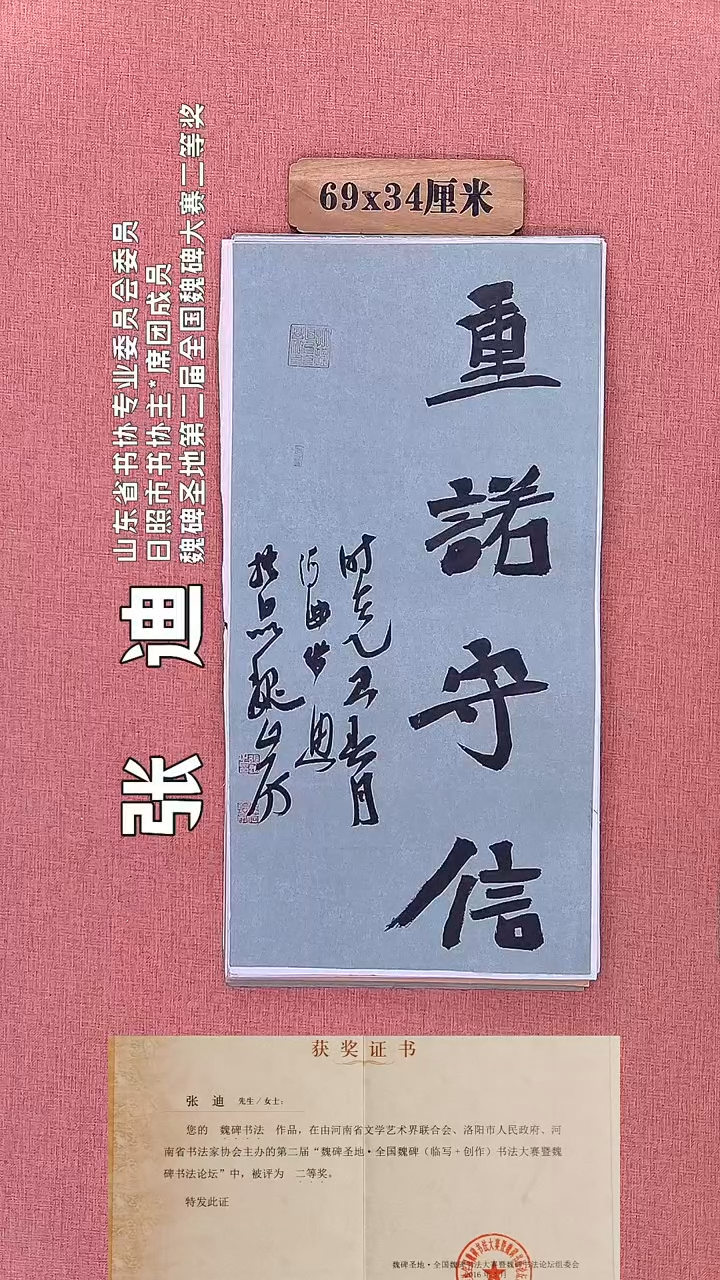 69x34厘米
重諾守信
山东省书协专业委员会委员
日照市书协主*席团成员
魏碑圣地第二届全国魏碑大赛二等奖
张 迪
获奖证书
张 迪 先生/女士:
您的 魏碑书法 作品,在由河南省文学艺术界联合会、洛阳市人民政府、河
南省书法家协会主办的第二届“魏碑圣地·全国魏碑(临写+创作)书法大赛暨魏
碑书法论坛”中,被评为 二等奖。
特发此证
魏碑圣地·全国魏碑书法大赛暨魏碑书法论坛组委会